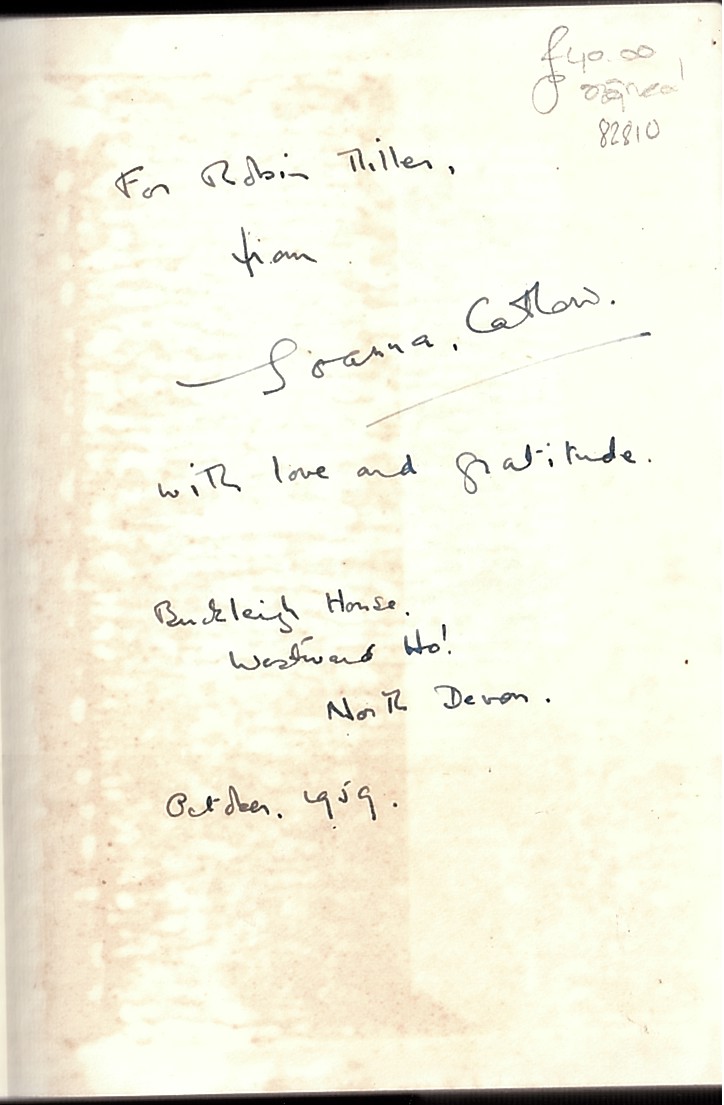 £40.00
signed
82810
For Robin Miller,
from
Joanna Catlow.
with love and gratitude.
Buckleigh House.
Westward Ho!
North Devon.
October. 1959.